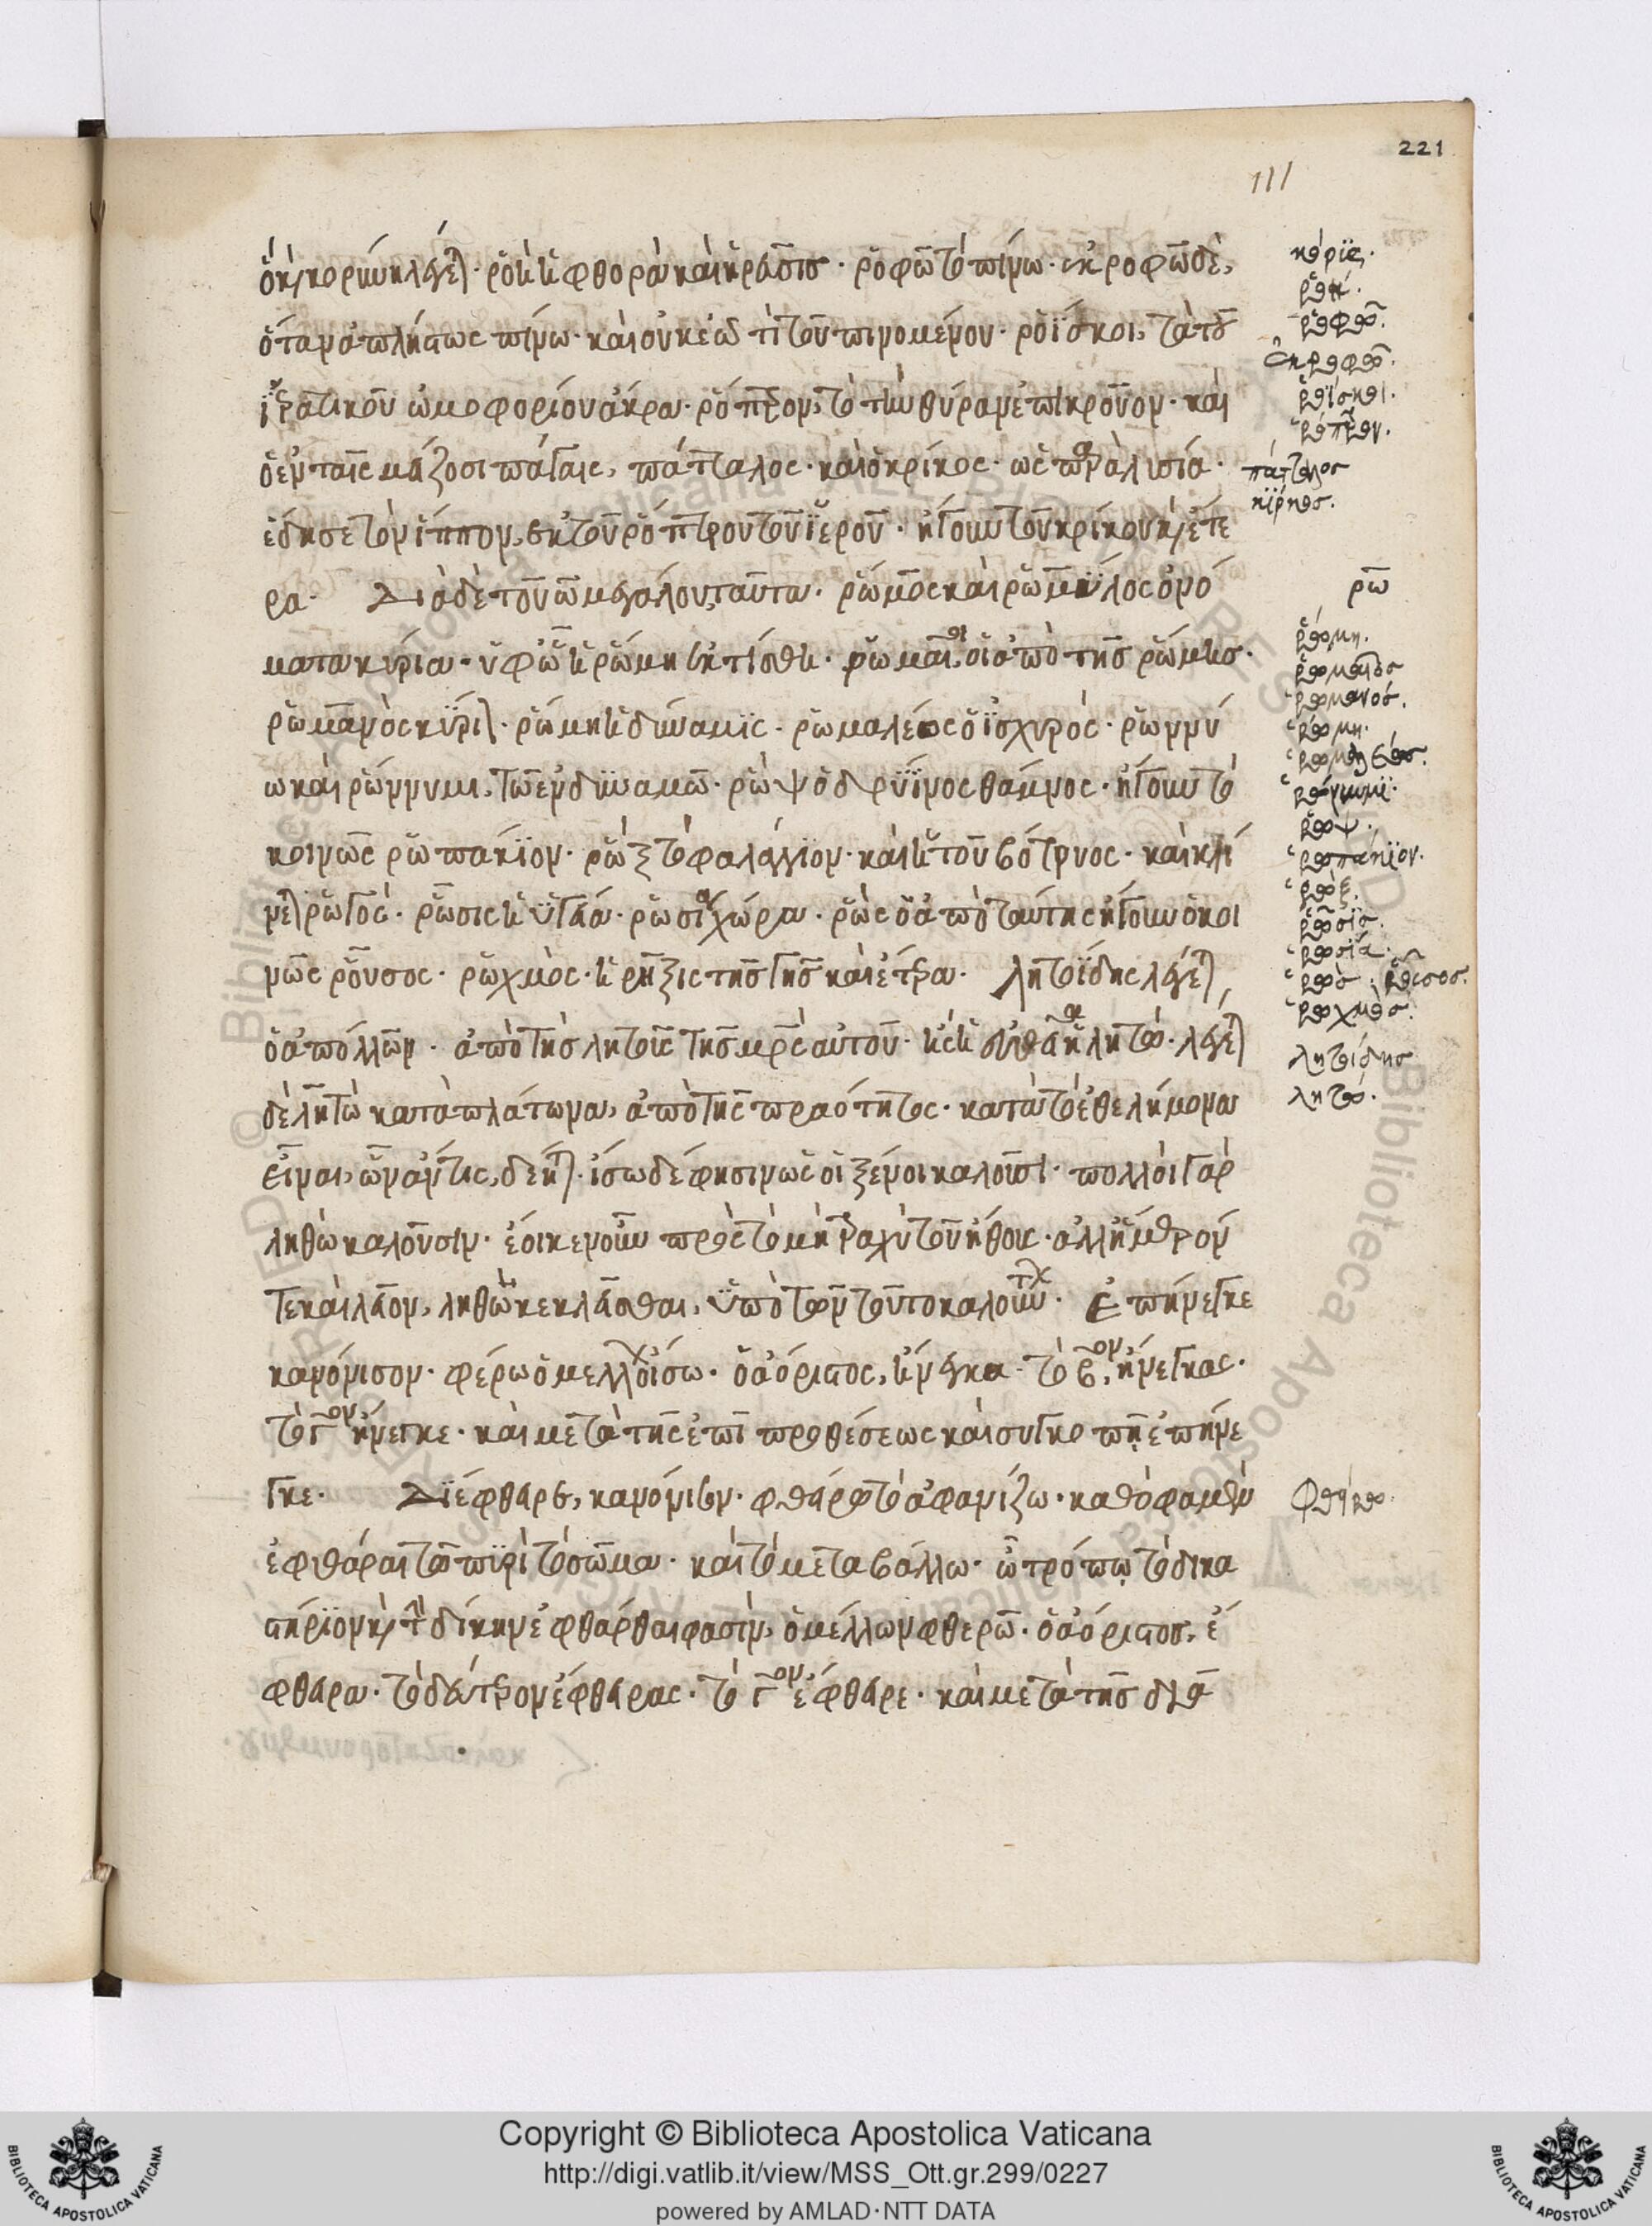 221
111
ὁ κ(αὶ) κορκύκ λέγετ(αι)· ῥοὴ ἡ φθορὰ καὶ κρᾶσις· ῥοφῶ τὸ πίνω· ἐκροφῶ δὲ,
ὅταν ἀπλήστως πίνω· καὶ οὐκ ἐῶ τὶ τοῦ πινομένου· ῥοΐσκοι, τὰ τοῦ
ἱερατικοῦ ὠμοφορίου ἄκρα· ῥόπτρον, τὸ τὴν θύραν ἐπικροῦον· καὶ
ὁ ἐν ταῖς πάγαις, πάτταλος· καὶ ὁ κρίκος· ὡς
ἔδησε τὸν ἵππον, ἐκ τοῦ ῥόπτρου τοῦ ἱεροῦ· ἤγουν τοῦ κρίκου κ(αὶ) ἕτε
ρα· Διὰ δὲ τοῦ ω μεγάλου, ταῦτα· ῥῶμος καὶ ῥωμύλος ὀνό
ματα κύρια· ὑφ' ὧν ἡ ῥώμη ἐκτίσθη· ῥωμαῖοι, οἱ ἀπὸ τῆς ῥώμης·
ῥωμανὸς κύρι(ον)· ῥώμη ἡ δύναμις· ῥωμαλέος ὁ ἰσχυρός· ῥωννύ
ω καὶ ῥώννυμι, τὸ ἐνδυναμῶ· ῥὼψ ὁ δρύϊνος θάμνος· ἤγουν τὸ
κοινῶς ῥωπάκιον· ῥὼξ τὸ φαλάγγιον· καὶ ἡ τοῦ βότρυος· καὶ κλί
νετ(αι) ῥωγός· ῥῶσις ἡ ὑγεία· ῥωσία χώρα· ῥὼς ὁ ἀπὸ ταύτης ἤγουν ὁ κοι
νῶς ῥοῦσος· ῥωχμὸς· ἡ ῥῆξις τῆς γῆς καὶ ἕτερα· λητοΐδης λέγετ(αι),
ὁ ἀπόλλων· ἀπὸ τῆς λητοῦς τῆς μητρὸς αὐτοῦ· λητώ· λέγετ(αι)
δὲ λητὼ κατὰ πλάτωνα, ἀπὸ τῆς πραότητος· κατὰ τὸ ἐθελήμονα
εἶναι, ὧν ἄν τις, δέητ(αι)· ἴσως δέ φησιν ὡς οἱ ξένοι καλοῦσι· πολλοὶ γὰρ
ληθὼ καλοῦσιν· ἔοικεν οὖν πρὸς τὸ μὴ τραχὺ τοῦ ἤθους· ἀλλ' ἥμερόν
τε καὶ λεῖον, ληθὼ κεκλῆσθαι, ὑπὸ τῶν τοῦτο καλούντων· Ἐπήνεγκε
κανόνισον· φέρω ὁ μέλλων οἴσω· ὁ ἀόριστος, ἤνεγκα· τὸ βον, ἤνεγκας·
τὸ γον ἤνεγκε· καὶ μετὰ τῆς ἐπὶ προθέσεως καὶ συγκοπῆ ἐπήνε
γκε· Διέφθαρε, κανόνισον· φθείρω τὸ ἀφανίζω· καθὸ φαμὲν
ἐφθάραι τῶ πυρὶ τὸ σῶμα· καὶ τὸ μεταβάλλω· ὧ τρόπω τὸ δικα
στήριον κ(αὶ) τὴν δίκην ἐφθάρθαι φασὶν, ὁ μέλλων φθερῶ· ὁ ἀόριστος, ἔ
φθειρα· τὸ δεύτερον ἔφθειρας· τὸ γον ἔφθειρε· καὶ μετὰ τῆς διὰ
ῥοή.
ῥοφῶ.
ἐκροφῶ.
ῥοΐσκοι.
ῥόπτρον.
πάτταλος
κίρκος.
ρω
ῥώμη.
ῥωμαῖος
ῥωμανός.
ῥώμη.
ῥωμαλέος.
ῥώννυμι.
ῥώψ.
ῥωπάκιον.
ῥώξ.
ῥῶσις.
ῥωσία.
ῥώς. ῥούσος.
ῥωχμός.
λητοίδης
λητώ.
Φθείρω.
Copyright © Biblioteca Apostolica Vaticana
http://digi.vatlib.it/view/MSS_Ott.gr.299/0227
powered by AMLAD·NTT DATA
BIBLIOTECA APOSTOLICA VATICANA
BIBLIOTECA APOSTOLICA VATICANA